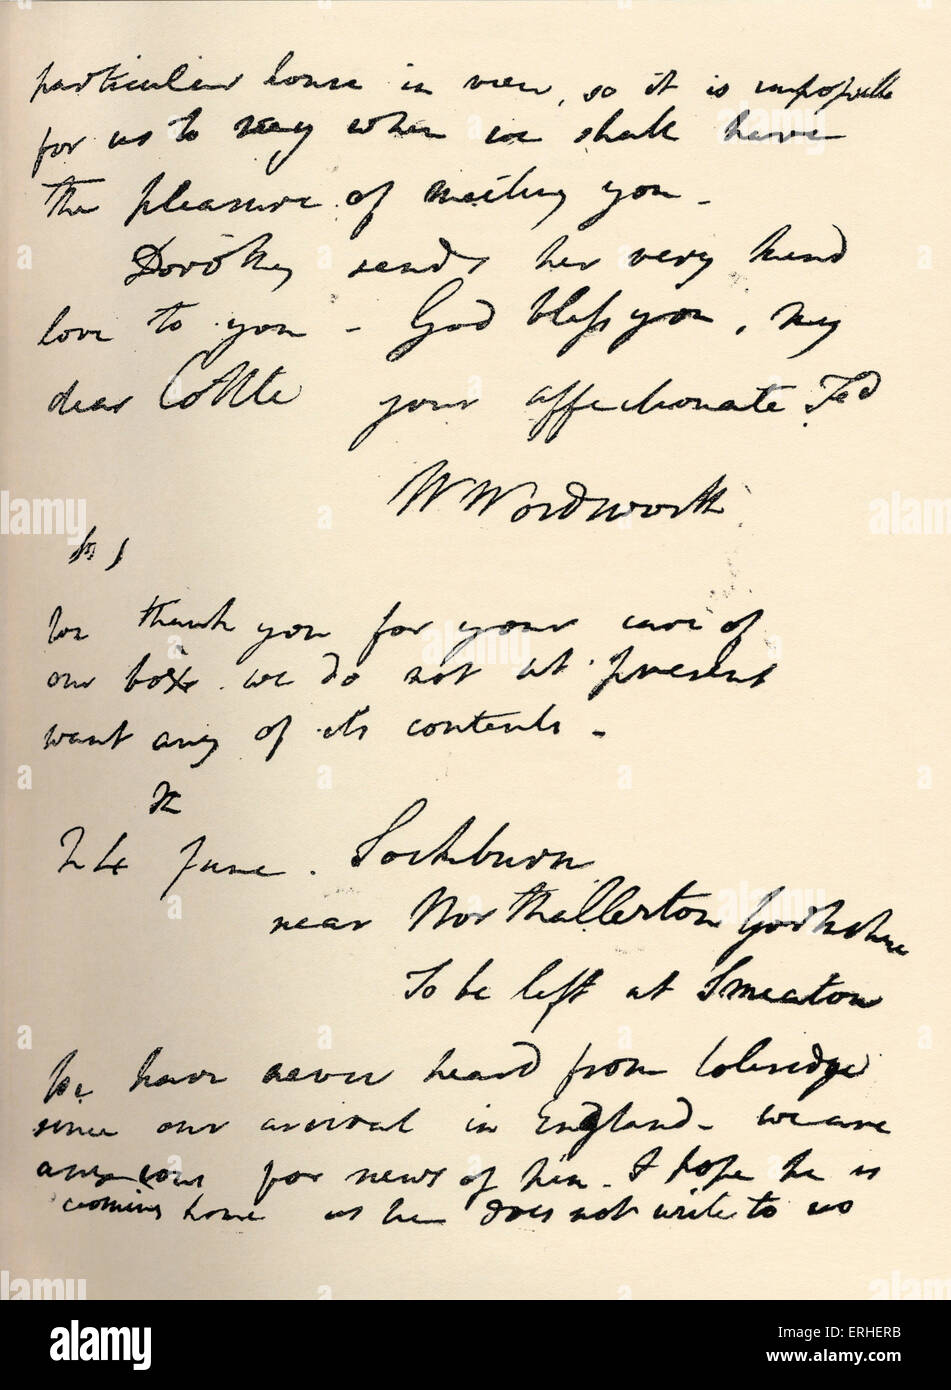 particular house in view, so it is impossible
for us to say when we shall have
the pleasure of meeting you –
Dorothy sends her very kind
love to you – God bless you, my
dear Cottle your affectionate Fd
W Wordsworth
We thank you for your care of
our box. we do not at present
want any of its contents –
th
24 June. Sockburn
near Northallerton Yorkshire
To be left at Smeaton
We have never heard from Coleridge
since our arrival in England – we are
anxious for news of him. I hope he is
coming home as he does not write to us
alamy
a
alamy stock photo
ERHERB
www.alamy.com